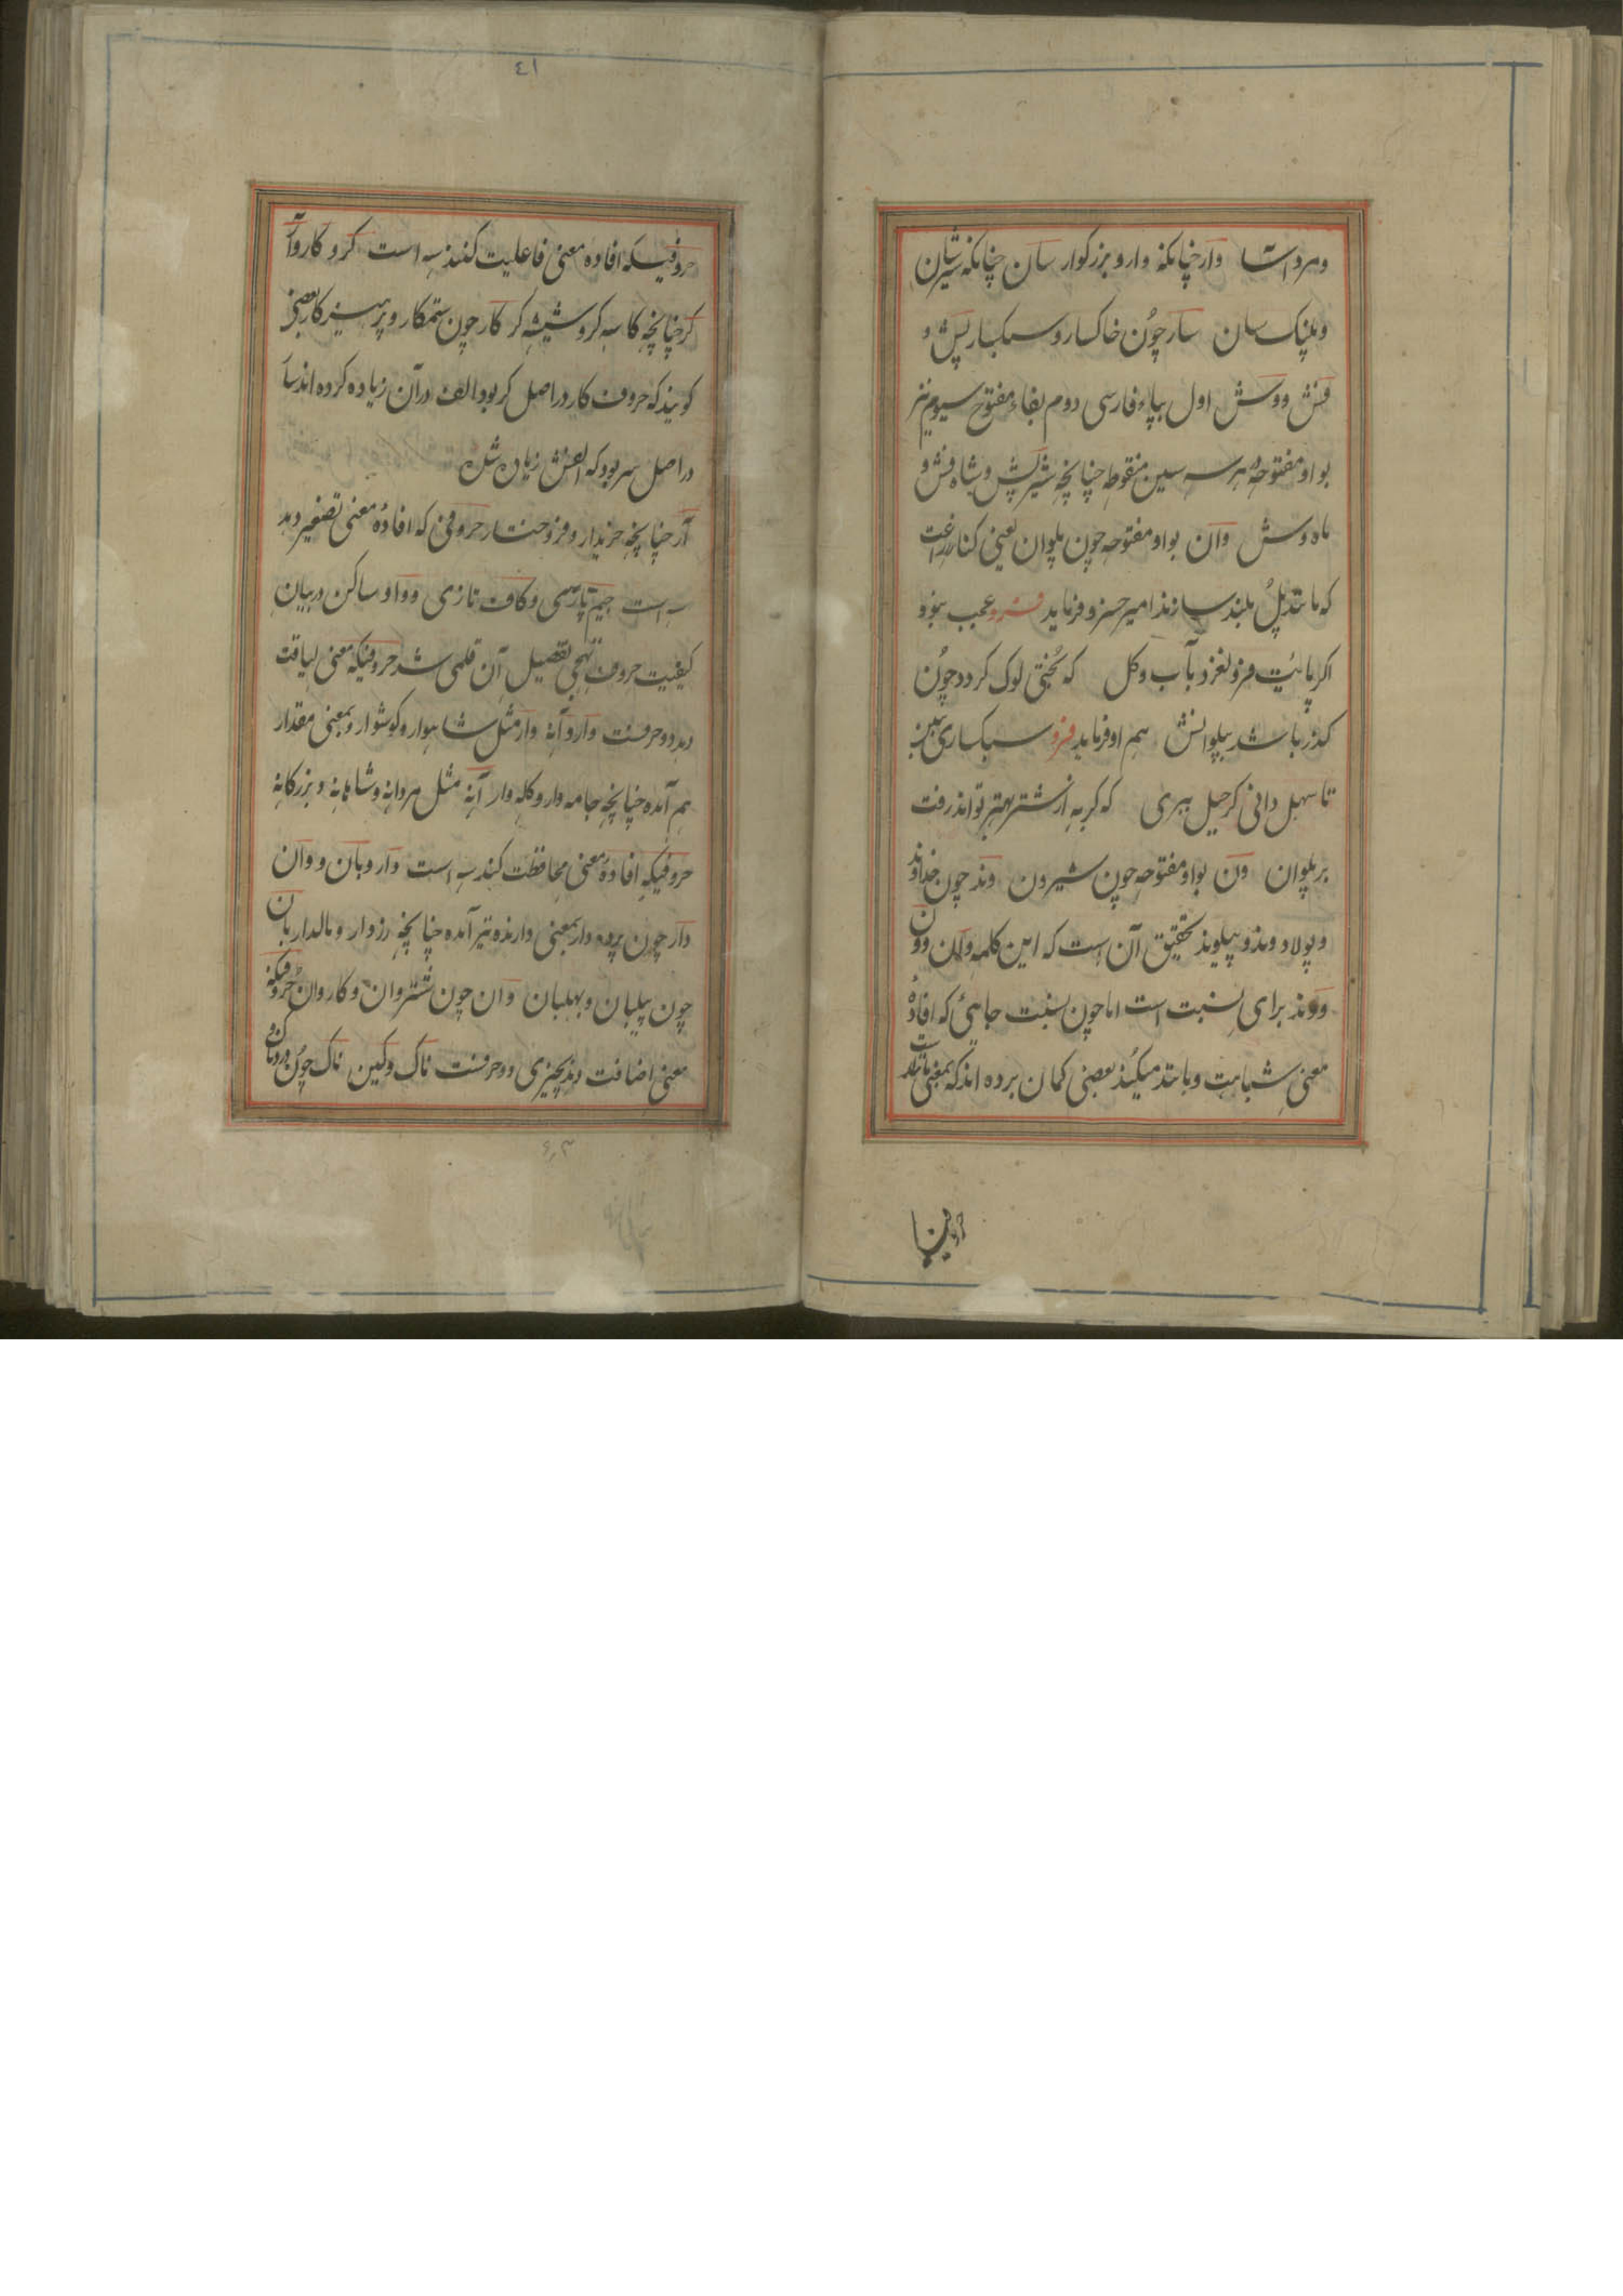 ومرد آسا وار چنانکه وار و بزرکوار سان چنانکه شیرسان
و پلنک سان سار چون خاکسار و سبکسار پش و
فش و وش اول بباء فارسی دوم بفاء مفتوح سیوم نیز
بواو مفتوحه و هر سه سین منقوطه چنانچه شیرپش و شاه فش و
ماه وش وان بواو مفتوحه چون پلوان یعنی کنار زراعت
که مانند پل بلند سازند امیر خسرو فرماید فرو عجب نبود
اکر پائیت فرو لغزد بآب و کل که بختی لوک کردد چون
کذر باشد بپلوانش هم او فرماید فرو سبکساری ببین
تا سهل دانی کر حیل ببری که کربه از شتر بهتر تواند رفت
بر پلوان ون بواو مفتوحه چون شیرون وند چون خداوند
و پولاد وند و پیلوند تحقیق آن است که این کلمه وان و ون
و وند برای نسبت است اما چون نسبت جایی که افادهٔ
معنی شباهت و مانند میکند بعضی کمان برده اند که بمعنی مانند است
حروفیا
٤١
حروفیکه افاده معنی فاعلیت کنند سه است کر و کار و آر
کر چنانچه کاسه کر و شیشه کر کار چون ستمکار و پرهیزکار بعضی
کویند که حروف کار در اصل کر بود الف در آن زیاده کرده اند سار
در اصل سر بود که الفش زیاده شده
آر چنانچه خریدار و فروختار حروفی که افادهٔ معنی تصغیر دهد
سه است جیم پارسی و کاف تازی و واو ساکن در بیان
کیفیت حروف تهجی تفصیل آن قلمی شد حروفیکه معنی لیاقت
دهد دو حرفست وار و آنه وار مثل شاهوار و کوشوار و بمعنی مقدار
هم آمده چنانچه جامه وار و کله وار آنه مثل مردانه و شاهانه و بزرکانه
حروفیکه افادهٔ معنی محافظت کند سه است دار و بان و وان
دار چون پرده دار بمعنی دارنده نیز آمده چنانچه رزدار و مالدار بان
چون پیلبان و بهلبان وان چون شتروان و کاروان حروفیکه
معنی اضافت دهد بچیزی دو حرفست ناک و کین ناک چون دردناک